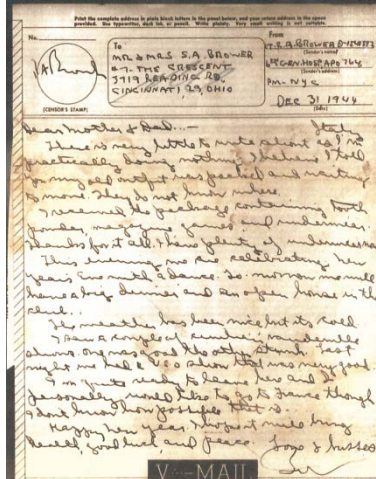 Print the complete address in plain block letters in the panel below, and your return address in the space
provided. Use typewriter, dark ink, or pencil. Write plainly. Very small writing is not suitable.
No.
(CENSOR'S STAMP)
To
MR & MRS S.A. BROWER
THE CRESCENT
3719 READING RD.
CINCINNATI 29, OHIO
From
BROWER
(Sender's name)
GEN. HOSP. APO 764
(Sender's address)
PM-NYC
DEC 31 1944
(Date)
Dear Mother & Dad... Italy
There is very little to write about as I'm
practically doing nothing. I believe I told
you my old outfit was packed and waiting
to move. They do not know where.
I received the package containing tooth
powder, magazine, games and underwear
thanks for it all. I have plenty of underwear now
This evening we are celebrating New
Year's Eve with a dance. Tomorrow we will
have a big dinner and an open house in the
club..
The weather has been nice but it's cold.
I saw a couple of vaudeville
shows. One was good the other stunk. Last
night we had a USO show that was very good.
I'm quite ready to leave here and
personally would like to go to France though
I don't know how possible that is.
Happy New Year. May next year bring
health, good luck, and peace. Love & kisses
V···-MAIL